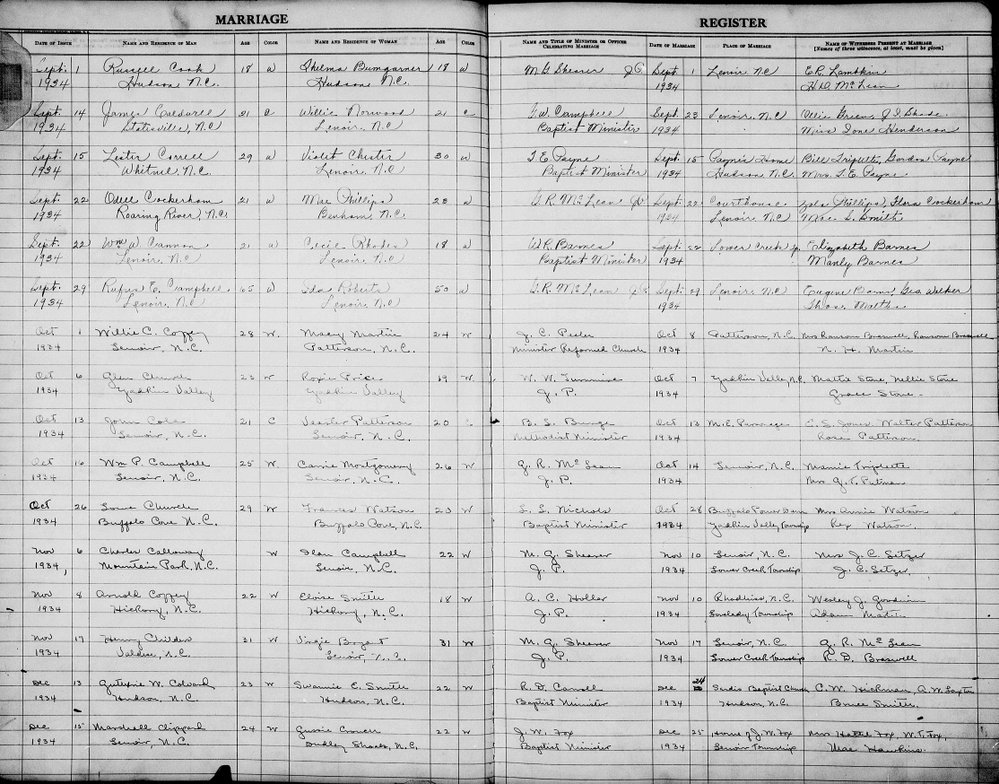 MARRIAGE
REGISTER
DATE OF ISSUE NAME AND RESIDENCE OF MAN AGE COLOR NAME AND RESIDENCE OF WOMAN AGE COLOR NAME AND TITLE OF MINISTER OR OFFICER CELEBRATING MARRIAGE DATE OF MARRIAGE PLACE OF MARRIAGE NAME OF WITNESSES PRESENT AT MARRIAGE
[Names of three witnesses, at least, must be given]
Sept. 1 Russell Cook 18 W Thelma Bumgarner 18 W M. G. Shearer J.P. Sept. 1 Lenoir NC E.R. Lambkin
1934 Hudson N.C. Hudson N.C. 1934 H.D. McLean
Sept. 14 James Caldwell 21 C Willie Norwood 21 C G.W. Campbell Sept. 23 Lenoir, N.C. Ollie Green
1934 Statesville, N.C Lenoir, N.C Baptist Minister 1934 Miss Ione Henderson
Sept. 15 Lester Correll 29 W Violet Chester 30 W T. E. Payne Sept. 15 Paynes Home Bill Triplett, Gordon Payne
1934 Whitnel N.C. Lenoir, N.C. Baptist Minister 1934 Hudson N.C. Mrs. T. E. Payne
Sept. 22 Odell Cockerham 21 W Mae Phillips 23 W G. R. McLean J.P. Sept. 22 Courthouse Phillips, Flora Cockerham
1934 Roaring River, N.C. Benham, N.C. 1934 Lenoir, N.C Mrs. Smith
Sept. 22 Wm. W. Cannon 21 W Cecil Rhodes 18 W W.R. Barnes Sept. 22 Lower Creek Elizabeth Barnes
1934 Lenoir, N.C Lenoir, N.C Baptist Minister 1934 Manly Barnes
Sept. 29 Rufus E. Campbell 65 W Ida Roberts 50 W G. R. McLean J.P. Sept. 29 Lenoir, N.C Eugene Geo Walker
1934 Lenoir, N.C Lenoir N.C 1934
Oct 1 Willie C. Coffey 28 W. Macy Martin 24 W J. C. Peeler Oct 8 Patterson, N.C. Mrs Ransom Braswell, Ransom Braswell
1934 Lenoir, N.C. Patterson, N.C. Minister Reformed Church 1934 N. H. Martin
Oct 6 Glen Church 23 W Roxie Price 19 W W. W. Oct 7 Yadkin Valley, N.C. Mattie Stone, Nellie Stone
1934 Yadkin Valley Yadkin Valley J. P. 1934 Grace Stone
Oct 13 John Cole 21 C Veaster Patterson 20 B. L. Oct 13 M.E. Parsonage C. E. Jones. Walter Patterson
1934 Lenoir, N.C. Lenoir, N.C. Methodist Minister 1934 Rose Patterson
Oct 16 Wm P. Campbell 25 W Carrie Montgomery 26 W G. R. McLean Oct 14 Lenoir, N.C. Mamie Triplette
1934 Lenoir, N.C. Lenoir, N.C. J. P. 1934 Mrs G. T. Putnam
Oct 26 Church 29 W Frances Watson 23 W L. L. Nichols Oct 28 Buffalo Mrs Annie Watson
1934 Buffalo Cove N.C. Buffalo Cove, N.C. Baptist Minister 1934 Yadkin Valley Township Rex Watson.
Nov 6 Charles Callaway W Campbell 22 W M. G. Shearer Nov 10 Lenoir, N.C. Mrs J. C. Setzer
1934, Mountain Park, N.C. Lenoir, N.C. J. P. 1934 Lower Creek Township J. C. Setzer
Nov 8 Arnold Coffey 22 W Eloise Smith 18 W A. C. Hollar Nov 10 Rhodhiss, N.C. Wesley J. Goodwin
1934 Hickory, N.C. Hickory, N.C. J.P. 1934 Lovelady Township Adam
Nov 17 Henry Childers 21 W Virgie Bryant 31 W M. G. Shearer Nov 17 Lenoir, N.C. G. R. McLean
1934 Valdese, N.C. Lenoir, N.C. J. P. 1934 Lower Creek Township R. D. Braswell
Dec 13 W. Colvard 23 W Swannie E. Smith 22 W R. D. Carroll Dec 24 Sardis Baptist Church C. W. Hickman,
1934 Hudson, N.C. Hudson, N.C. Baptist Minister 1934 Hudson, N.C. Bruce Smith
Dec 15 Marshall Clippard 24 W Gussie 22 W J. W. Fox Dec 25 Home of J. W. Fox Mrs Hattie Fox, W. T. Fox,
1934 Lenoir, N.C. Dudley Shoals, N.C. Baptist Minister 1934 Lenoir Township Hawkins.